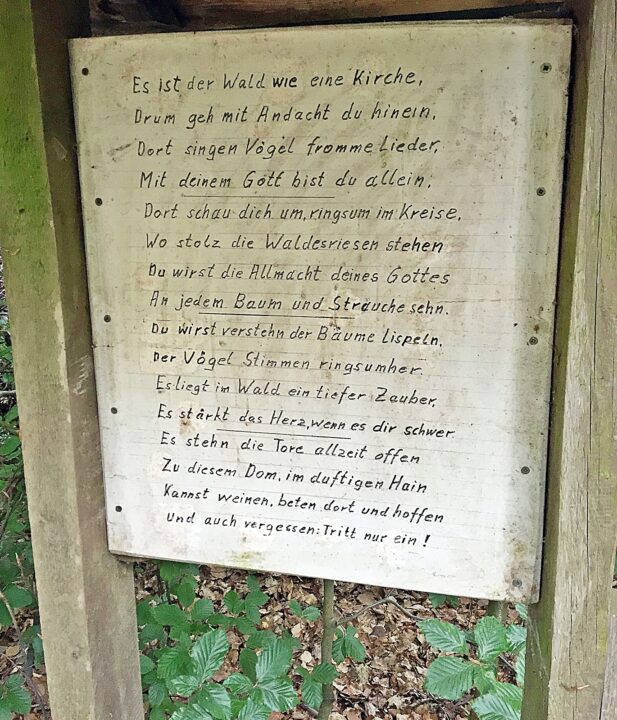 Es ist der Wald wie eine Kirche,
Drum geh mit Andacht du hinein,
Dort singen Vögel fromme Lieder,
Mit deinem Gott bist du allein,
Dort schau dich um, ringsum im Kreise,
Wo stolz die Waldesriesen stehen
Du wirst die Allmacht deines Gottes
An jedem Baum und Strauche sehn.
Du wirst verstehn der Bäume lispeln,
Der Vögel Stimmen ringsumher.
Es liegt im Wald ein tiefer Zauber,
Es stärkt das Herz, wenn es dir schwer
Es stehn die Tore allzeit offen
Zu diesem Dom, im duftigen Hain
Kannst weinen, beten dort und hoffen
Und auch vergessen: Tritt nur ein!